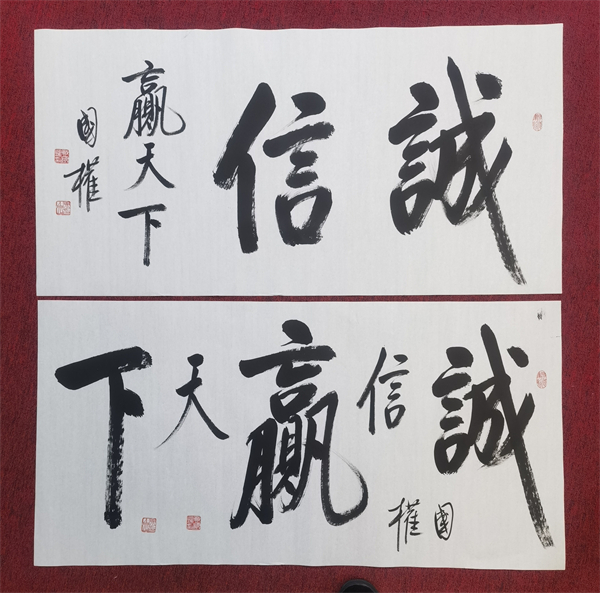 誠信
贏天下
國權
誠信贏天下
國權